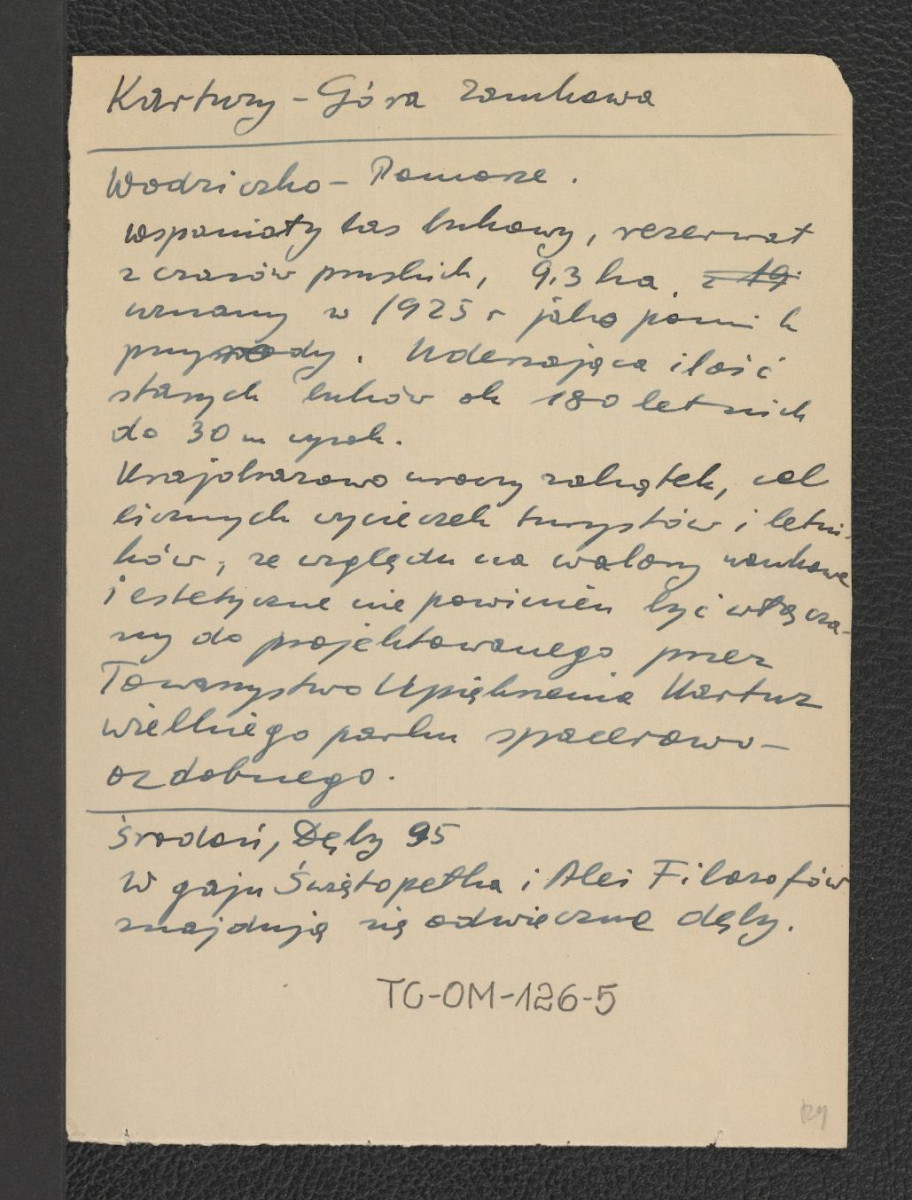 Kartuzy - Góra Zamkowa
Wodziczko - Pomorze.
wspaniały las bukowy, rezerwat
z czasów pruskich, 9.3 ha. z 19
uznany w 1925 r jako pomnik
przyrody. Uderzająca ilość
starych buków ok 180 letnich
do 30 m wysok.
Krajobrazowo uroczy zakątek, cel
licznych wycieczek turystów i letni-
ków, ze względu na walory naukowe
i estetyczne nie powinien być włącza-
ny do projektowanego przez
Towarzystwo Upiększenia Kartuz
wielkiego parku spacerowo-
ozdobnego.
Środoń, Dęby 95
W gaju Świętopełka i Alei Filozofów
znajdują się odwieczne dęby.
TG-OM-126-5